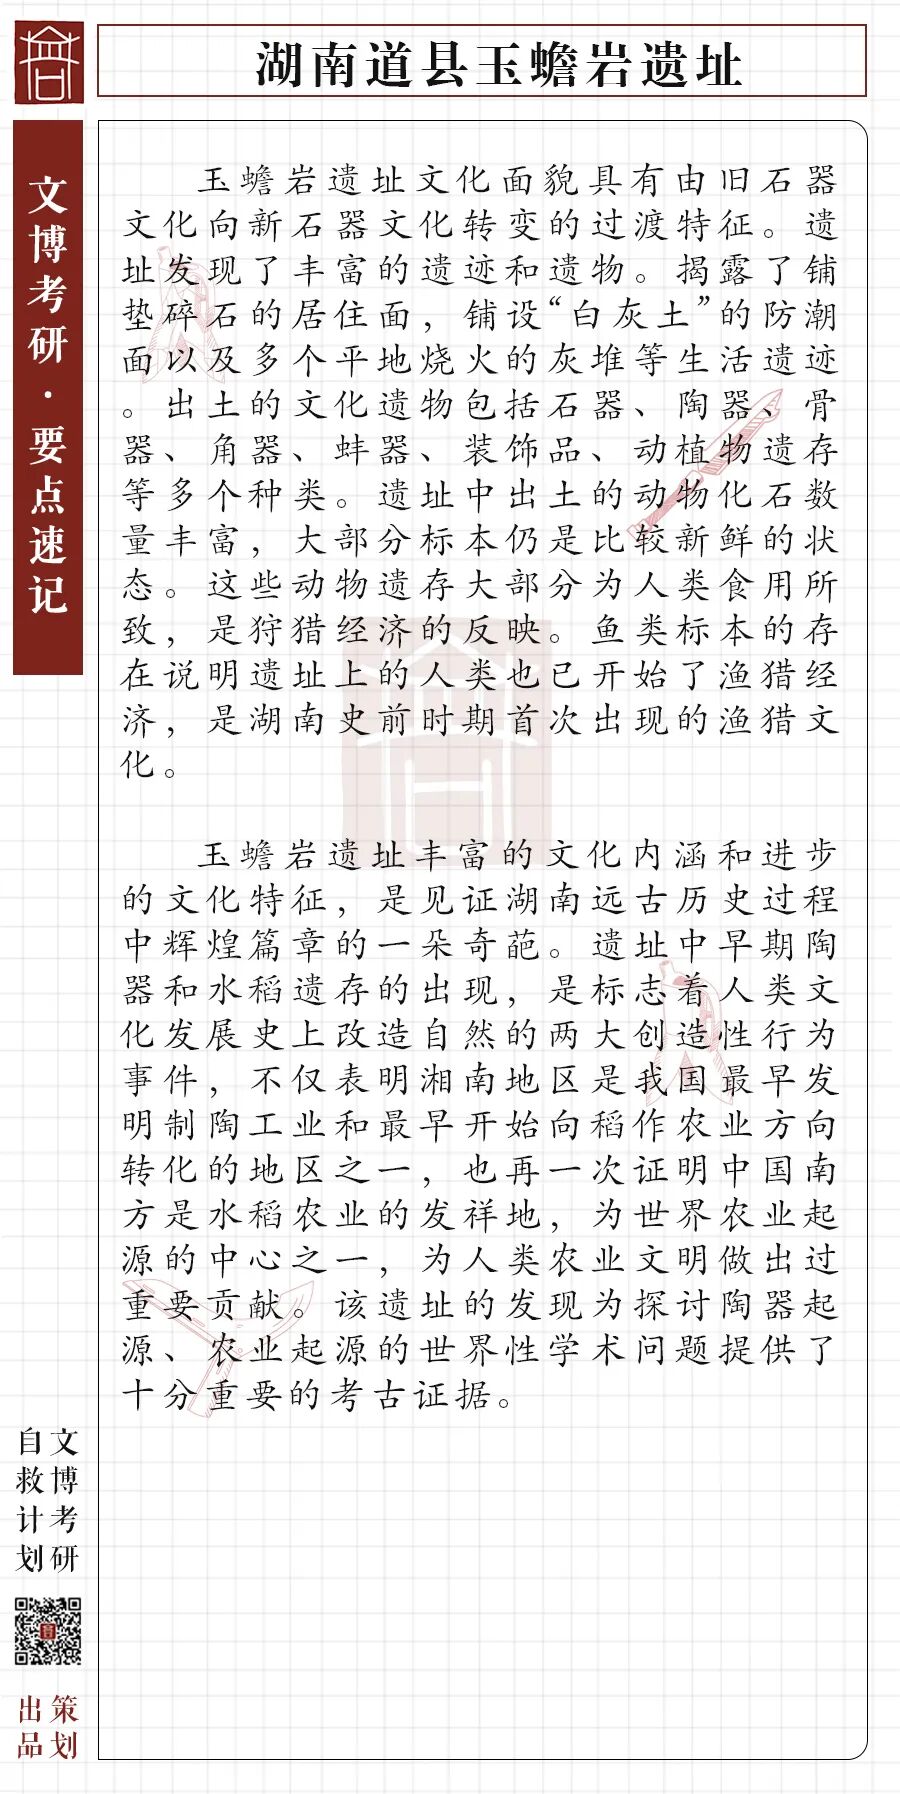 湖南道县玉蟾岩遗址
文博考研·要点速记
玉蟾岩遗址文化面貌具有由旧石器
文化向新石器文化转变的过渡特征。遗
址发现了丰富的遗迹和遗物。揭露了铺
垫碎石的居住面，铺设“白灰土”的防潮
面以及多个平地烧火的灰堆等生活遗迹
。出土的文化遗物包括石器、陶器、骨
器、角器、蚌器、装饰品、动植物遗存
等多个种类。遗址中出土的动物化石数
量丰富，大部分标本仍是比较新鲜的状
态。这些动物遗存大部分为人类食用所
致，是狩猎经济的反映。鱼类标本的存
在说明遗址上的人类也已开始了渔猎经
济，是湖南史前时期首次出现的渔猎文
化。
玉蟾岩遗址丰富的文化内涵和进步
的文化特征，是见证湖南远古历史过程
中辉煌篇章的一朵奇葩。遗址中早期陶
器和水稻遗存的出现，是标志着人类文
化发展史上改造自然的两大创造性行为
事件，不仅表明湘南地区是我国最早发
明制陶工业和最早开始向稻作农业方向
转化的地区之一，也再一次证明中国南
方是水稻农业的发祥地，为世界农业起
源的中心之一，为人类农业文明做出过
重要贡献。该遗址的发现为探讨陶器起
源、农业起源的世界性学术问题提供了
十分重要的考古证据。
文博考研
自救计划
策划
出品